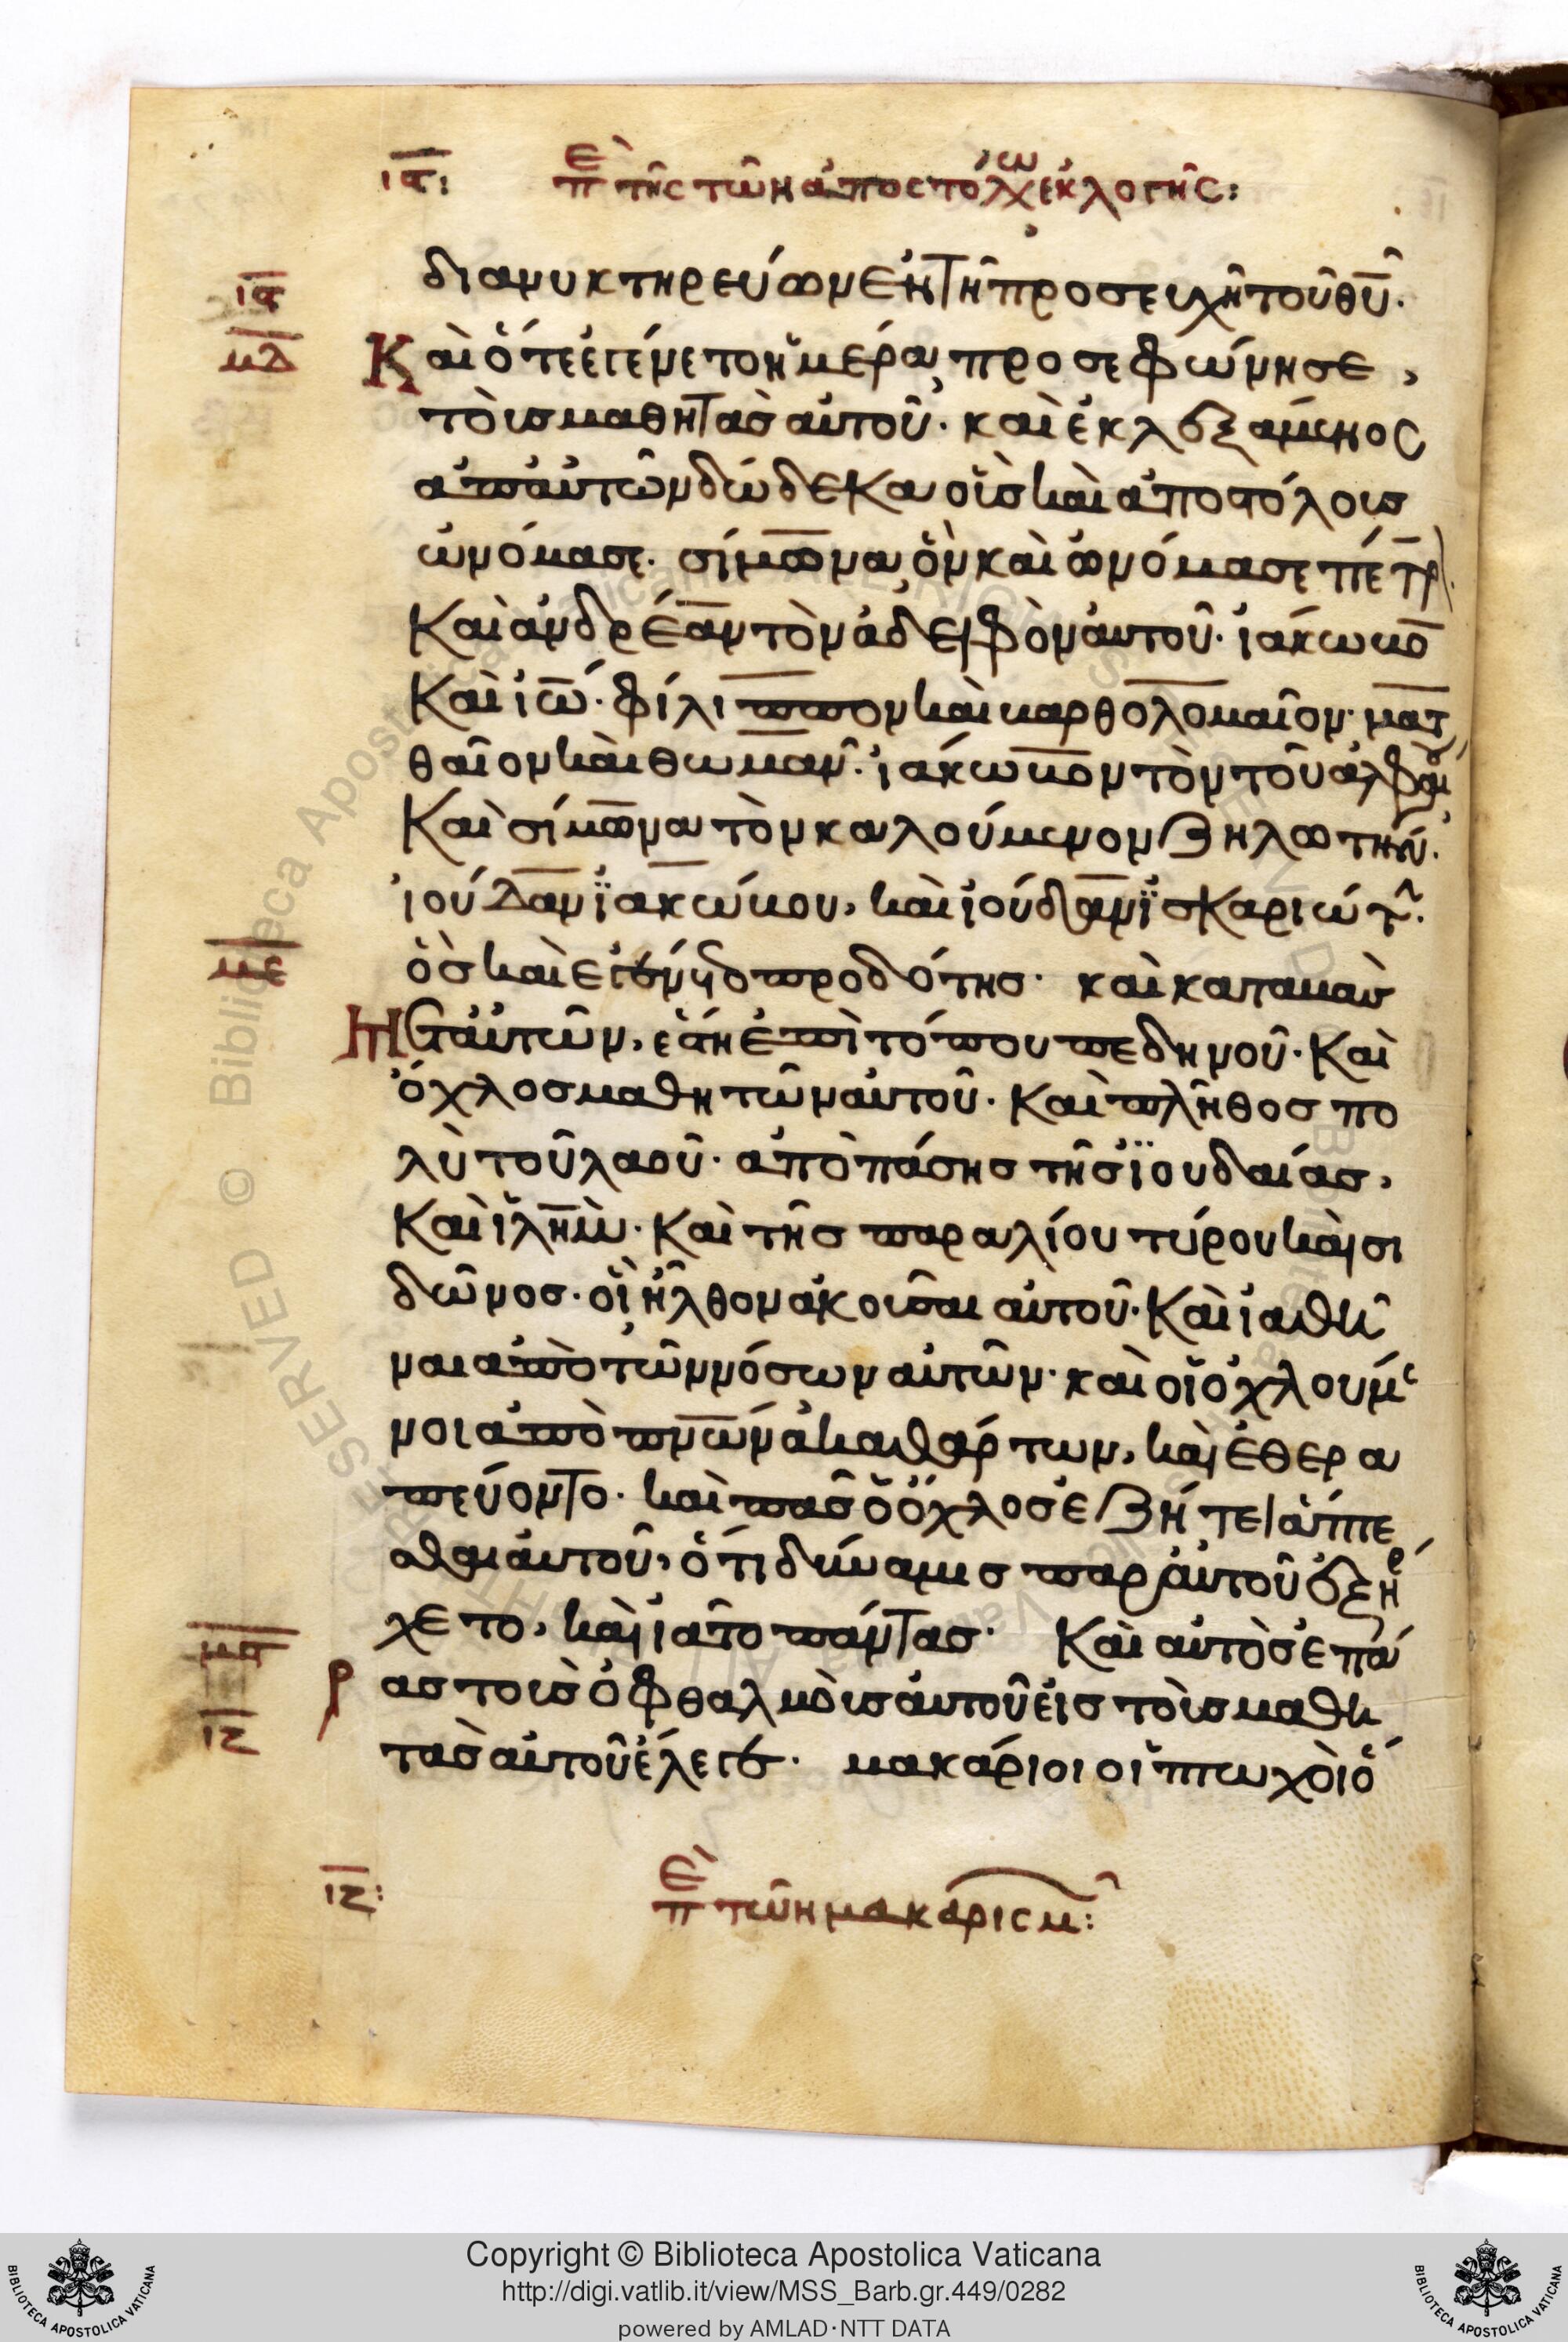 ιϛ: ἐπ τῆς τῶν ἀποστόλω ἐκλογῆς:
διανυκτηρεύων ἐν τῆ προσευχῆ τοῦ θυ.
ιϛ
μδ
Καὶ ὅτε ἐγένετο ἡμέρα, προσεφώνησε,
τοὺς μαθητὰς αὐτοῦ. καὶ ἐκλεξάμενος
ἀπ' αὐτῶν δώδεκα οὓς καὶ ἀποστόλους
ὠνόμασε. σίμωνα, ὃν καὶ ὠνόμασε πέτρ.
Καὶ ἀνδρέαν τὸν ἀδελφὸν αὐτοῦ. ἰάκωβο
Καὶ ἰω. φίλιππον καὶ βαρθολομαῖον. ματ
θαῖον καὶ θωμᾶν. ἰάκωβον τὸν τοῦ ἀλφαίου
Καὶ σίμωνα τὸν καλούμενον ζηλωτήν.
ἰούδαν ἰακώβου, καὶ ἰούδαν ἰσκαριώτ.
με
ὃς καὶ ἐγένετο προδότης. καὶ καταβὰς
μετ' αὐτῶν, ἔστη ἐπὶ τόπου πεδηνοῦ. Καὶ
ὄχλος μαθητῶν αὐτοῦ. Καὶ πλῆθος πο
λὺ τοῦ λαοῦ. ἀπὸ πάσης τῆς ἰουδαίας,
Καὶ ιλημ. Καὶ τῆς παραλίου τύρου καὶ σι
δῶνος. οἳ ἦλθον ἀκοῦσαι αὐτοῦ. Καὶ ἰαθῆ
ναι ἀπὸ τῶν νόσων αὐτῶν. καὶ οἱ ὀχλούμε
νοι ἀπὸ πνων ἀκαθάρτων, καὶ ἐθερα
πεύοντο. καὶ πᾶς ὁ ὄχλος ἐζήτει ἅπτε
σθαι αὐτοῦ, ὅτι δύναμις παρ' αὐτοῦ ἐξήρ
χετο, καὶ ἰᾶτο πάντας. Καὶ αὐτὸς ἐπάρ
μϛ
ας τοὺς ὀφθαλμοὺς αὐτοῦ εἰς τοὺς μαθη
ιζ
τὰς αὐτοῦ ἔλεγε. μακάριοι οἱ πτωχοὶ ὅ
ιζ: ἐπ τῶν μακαρισμ:
Copyright © Biblioteca Apostolica Vaticana
http://digi.vatlib.it/view/MSS_Barb.gr.449/0282
powered by AMLAD·NTT DATA